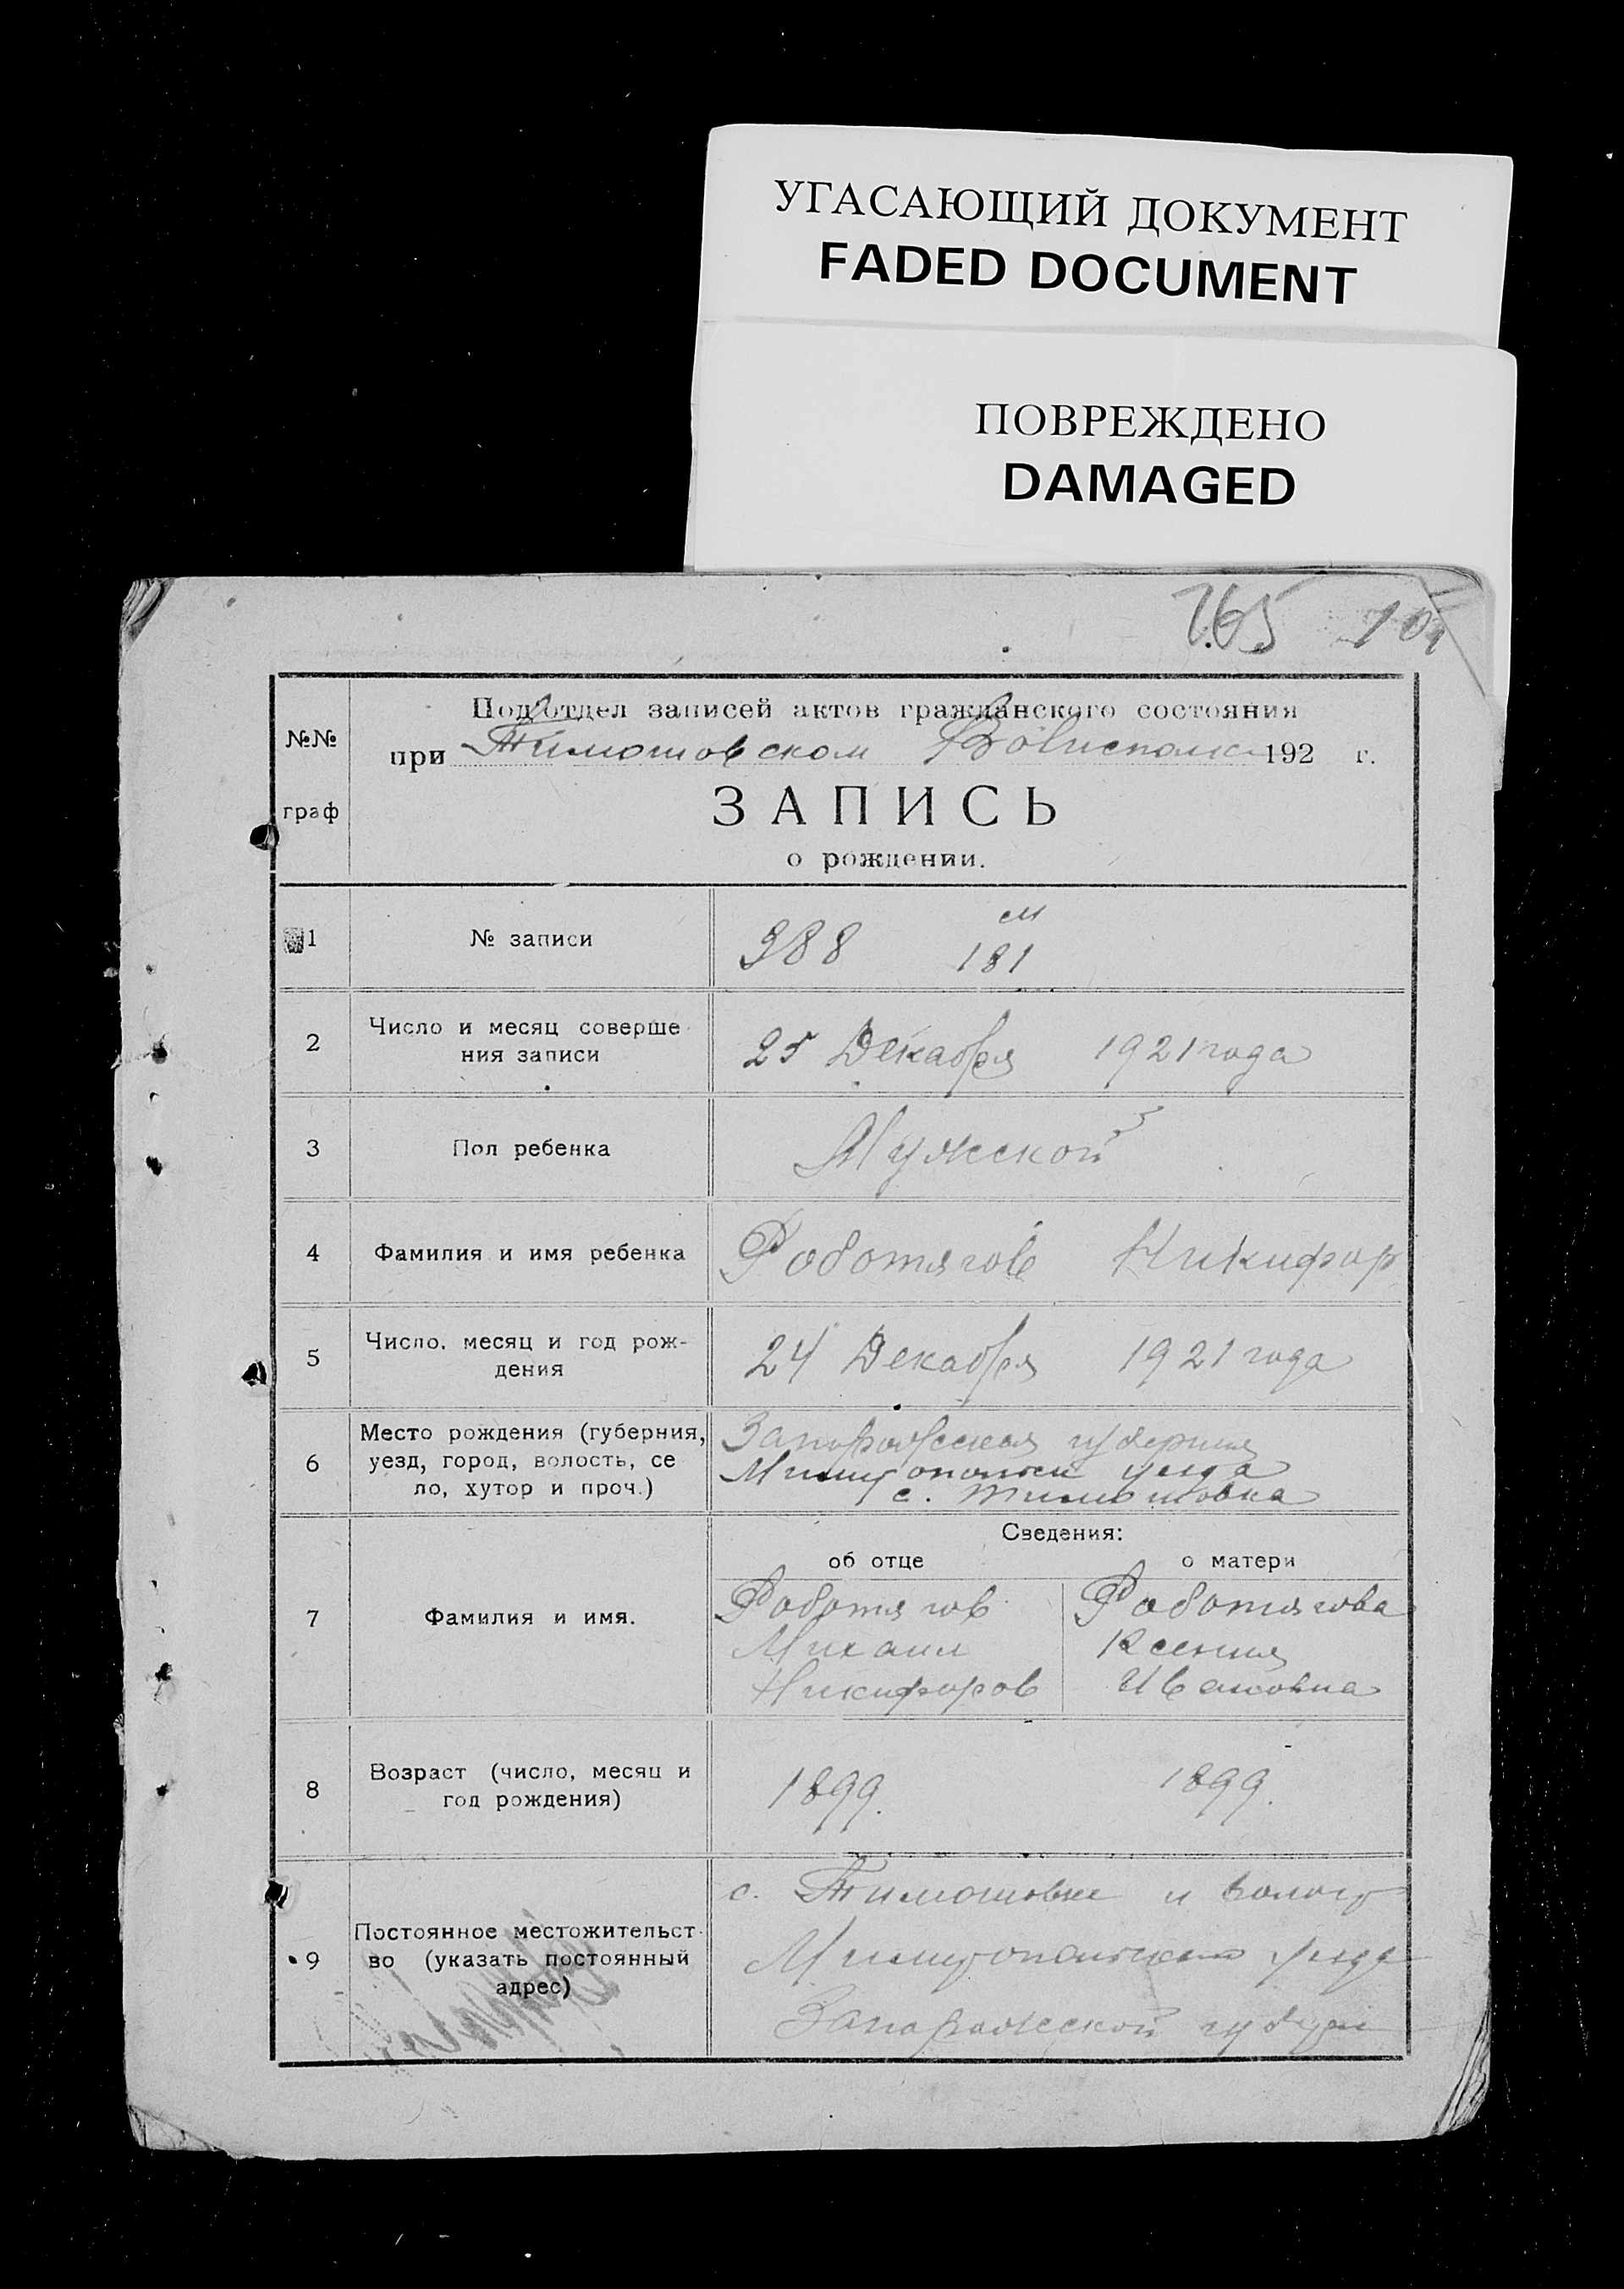 УГАСАЮЩИЙ ДОКУМЕНТ
FADED DOCUMENT
ПОВРЕЖДЕНО
DAMAGED
765
№№
граф
Подотдел записей актов гражданского состояния
при Тимошовском Волисполк 192 г.
ЗАПИСЬ
о рождении.
1 № записи 388 см 181
2 Число и месяц соверше
ния записи 25 Декабря 1921 года
3 Пол ребенка Мужской
4 Фамилия и имя ребенка Роботягов Никифор
5 Число, месяц и год рож-
дения 24 Декабря 1921 года
6 Место рождения (губерния,
уезд, город, волость, се
ло, хутор и проч.)
Запорожская губерния
уезда
с. Тимошовка
Сведения:
об отце о матери
7 Фамилия и имя.
Роботягов Роботягова
Михаил Ксения
Никифоров Ивановна
8 Возраст (число, месяц и
год рождения) 1899. 1899.
9 Постоянное местожительст
во (указать постоянный
адрес)
с. Тимошовке и
уезда
Запорожской